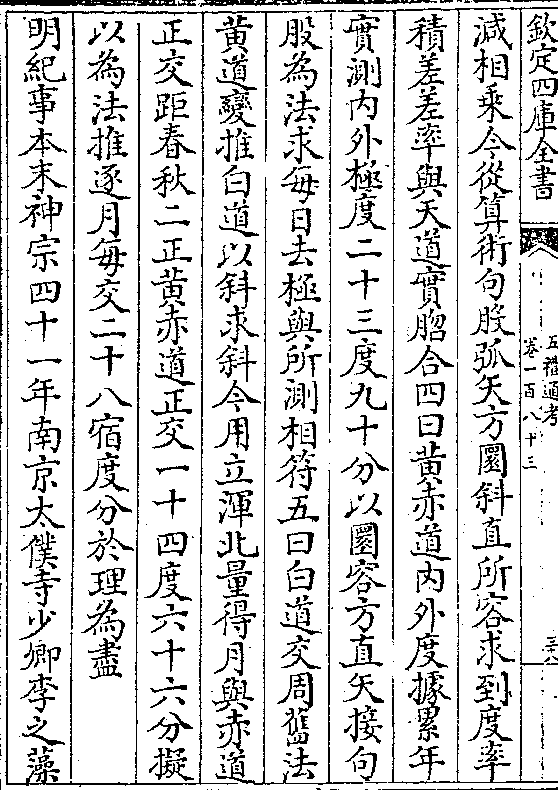 欽定四庫全書
五禮通考
卷一百八十三
減相乘今從算術句股弧矢方圜斜直所容求到度率
積差差率與天道實脗合四曰黄赤道内外度據累年
實測内外極度二十三度九十分以圜容方直矢接句
股為法求每日去極與所測相符五曰白道交周舊法
黄道變推白道以斜求斜今用立渾北量得月與赤道
正交距春秋二正黄赤道正交一十四度六十六分擬
以為法推逐月每交二十八宿度分於理為盡
明紀事本末神宗四十一年南京太僕寺少卿李之藻